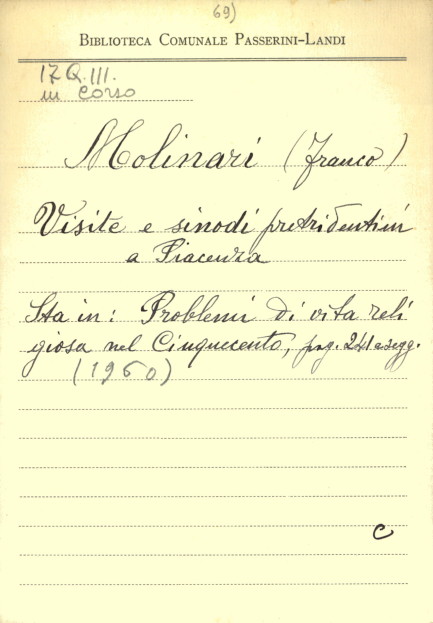 69)
BIBLIOTECA COMUNALE PASSERINI-LANDI
17Q.III.
in corso
Molinari (Franco)
Visite e sinodi pretridentini
a Piacenza
Sta in: Problemi di vita reli
giosa nel Cinquecento, pag. 241 e segg.
(1960)
C